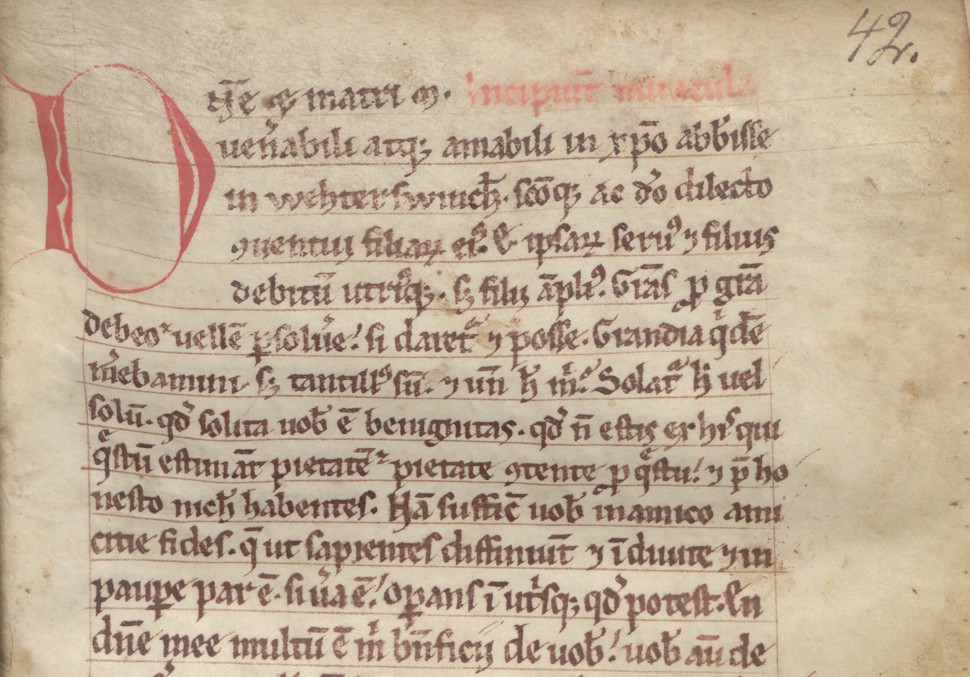 42.
Dn̄e ⁊ matri M. Incipiunt miracula
Uen̄abili atq; amabili in xp̄o abb̄isse
in wehterswinch̄. sc̄oq; ac dō dilecto
ꝯuentui filiaꝝ eiꝰ. & ipsaꝝ seruꝰ ⁊ filius
debitū utriꝰq;. sꝫ filii āpliꝰ. Gr̄as ꝓ gr̄a
debeo uellē ꝑsolue͛. si daret᷑ ⁊ posse. Grandia q̇dē
m͛ebamini. sꝫ tantillꝰ sū. ⁊ un̄ h̄ m̄. Solat᷑ h̄ uel
solū. qd̓ solita uob̄ ē benignitas. qd̓ n̄ estis ex hiꝰ qui
q̄stū estimāt pietatē pietate ꝯtente ꝓ q̄stu. ⁊ p̄ ho
nesto nich̄ habentes. Nā suffic̄ uob̄ in amico ami
citie fides. q̄ ut sapientes diffiniūt ⁊ ī diuite ⁊ in
pauꝑe par ē. si u͛a ē. oꝑans ī ut͛sq; qd̓ potest. En
dn̄e mee multū ē m̄ bn̄ficij de uob̄. uob̄ aū de